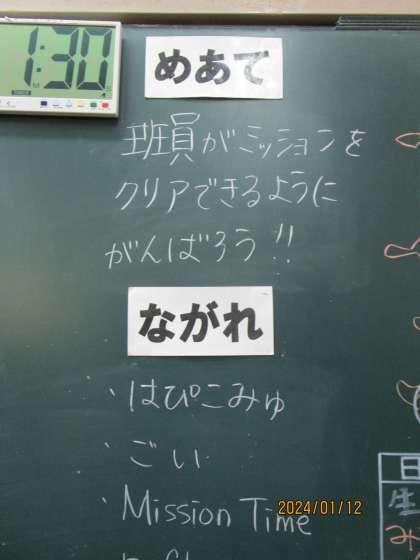 1:30
めあて
班員がミッションを
クリアできるように
がんばろう!!
ながれ
・はぴこみゅ
・ごい
・Mission Time
2024/01/12
日
生
み